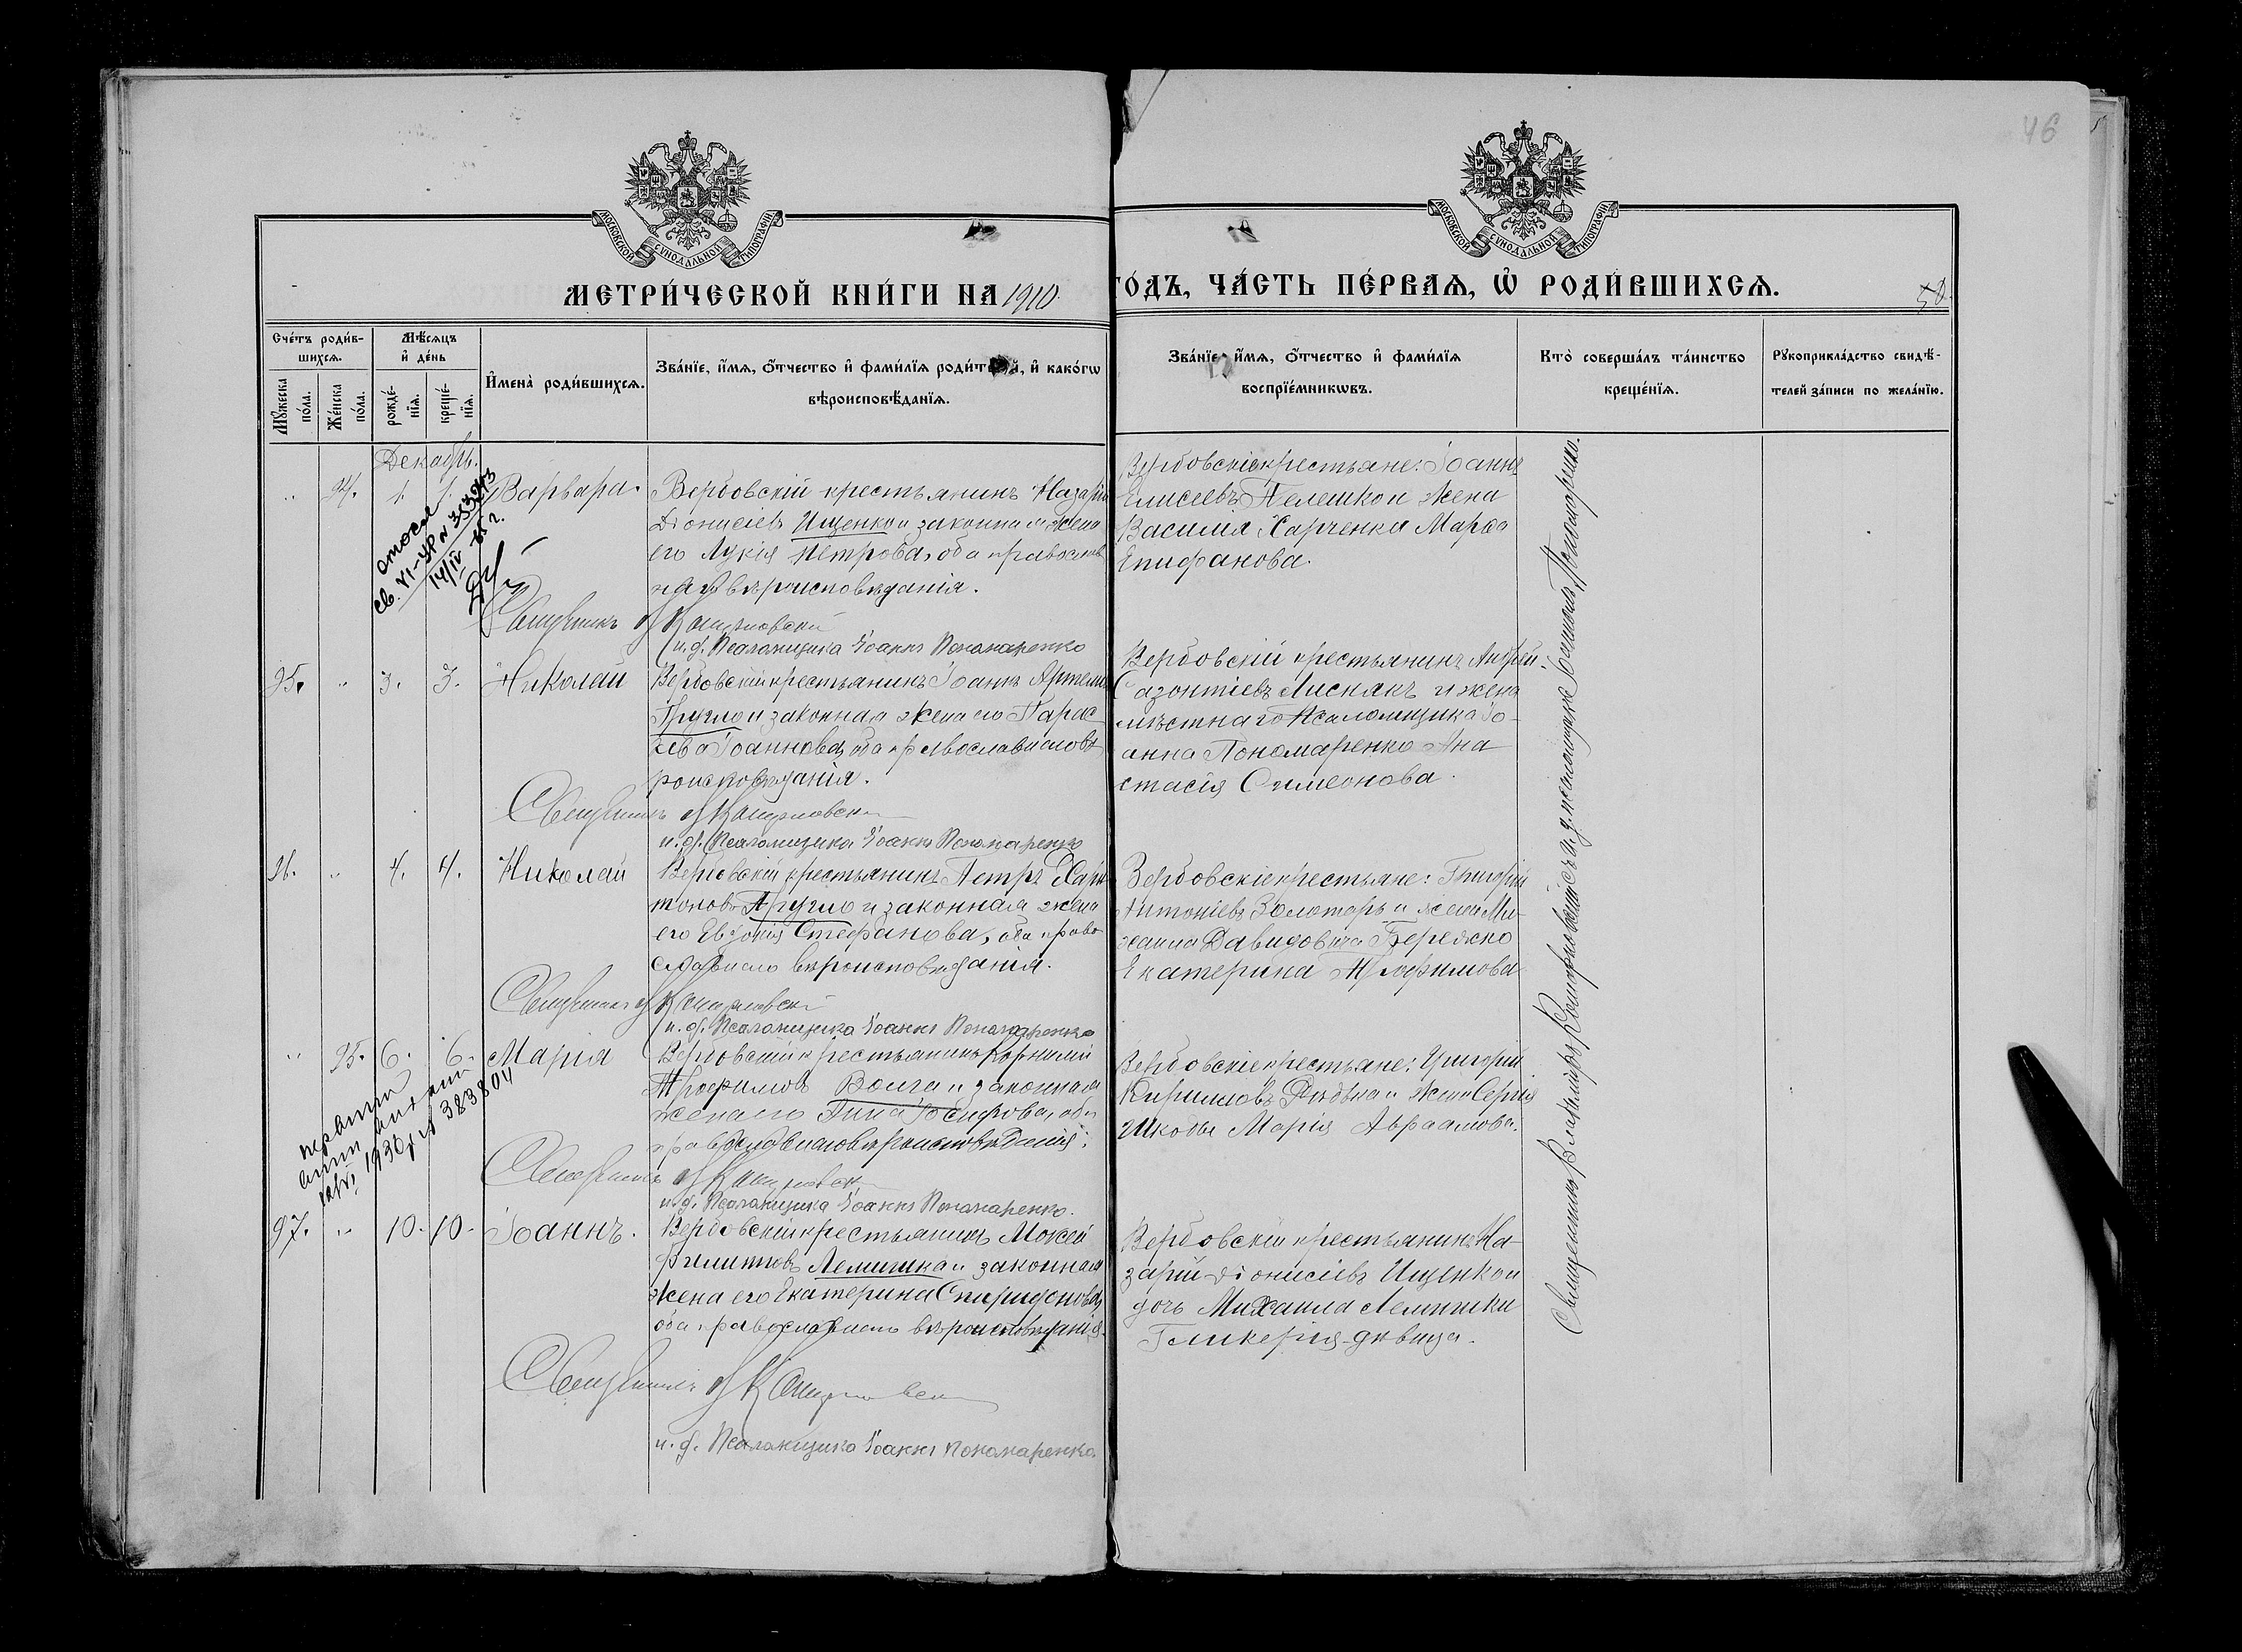 46
МОСКОВСКОЙ СѴНОДАЛЬНОЙ ТИПОГРАФІИ
МОСКОВСКОЙ СѴНОДАЛЬНОЙ ТИПОГРАФІИ
МЕТРИ́ЧЕСКОЙ КНИ́ГИ НА 1910
ГО́ДЪ, ЧА́СТЬ ПЕ́РВАѦ, Ѡ҆ РОДИ́ВШИХСѦ.
Сче́тъ роди́в-
шихсѧ.
Мꙋжеска по́ла.
Же́нска по́ла.
Мѣ́сѧцъ
и҆ де́нь
рожде́-
нїѧ.
креще́-
нїѧ.
И҆мена̀ роди́вшихсѧ.
Зва́нїе, и҆́мѧ, ѻ҆́тчество и҆ фами́лїѧ роди́телей, и҆ како́гѡ
вѣроисповѣ́данїѧ.
Зва́нїе, и҆́мѧ, ѻ҆́тчество и҆ фами́лїѧ
воспрїе́мникѡвъ.
Кто̀ соверша́лъ та́инство
креще́нїѧ.
Рꙋкоприкла́дство свидѣ́-
телей за́писи по жела́нїю.
Декабрь.
" 94. 1. 1. Варвара.
Вербовскій крестьянинъ Назарій
Діонисіевъ Ищенко и законная жена
его Лукія Петрова, оба православ
наго вѣроисповѣданія.
Священникъ В Каширловскій
и. д. Псаломщика Іоаннъ Пономаренко
Вербовскіе крестьяне: Іоаннъ
Елисеевъ Пелешко и жена
Василія Харченка Марфа
Епифанова.
№ 353243
95. " 3. 3. Николай
Вербовскій крестьянинъ Іоаннъ Артемовъ
и законная жена его Парас
кева Іоаннова, оба православнаго вѣ
роисповѣданія.
Священникъ В
и. д. Псаломщика Іоаннъ Пономаренко
Вербовскій крестьянинъ Андрей
Сазонтіевъ Лискакъ и жена
мѣстнаго Псаломщика Іо-
анна Пономаренко Ана
стасія Симеонова.
96. " 4. 4. Николай
Вербовскій крестьянинъ Петръ Хари
тоновъ и законная жена
его Евдокія Стефанова, оба право
славнаго вѣроисповѣданія.
Священникъ В
и. д. Псаломщика Іоаннъ Пономаренко
Вербовскіе крестьяне: Григорій
Антоніевъ Золотарь и жена Ми-
хаила Давидовича Бережко
Екатерина Трофимова
" 95. 6. 6. Марія
Вербовскій крестьянинъ Корнилій
Трофимовъ Волга и законная
жена его Іосифова, оба
православнаго вѣроисповѣданія.
Священникъ В
и. д. Псаломщика Іоаннъ Пономаренко.
Вербовскіе крестьяне: Григорій
Кирилловъ и жена Сергія
Шкоды Марія Авраамова.
1930 г № 383804
97. " 10. 10. Іоаннъ.
Вербовскій крестьянинъ Моисей
Филипповъ Лемишка и законная
жена его Екатерина Спиридонова,
оба православнаго вѣроисповѣданія.
Священникъ В
и. д. Псаломщика Іоаннъ Пономаренко
Вербовскій крестьянинъ На-
зарій Діонисіевъ Ищенко и
дочь Михаила Лемишки
Гликерія дѣвица.
Священникъ Владиміръ съ и. д. псаломщика Іоанномъ Пономаренко.